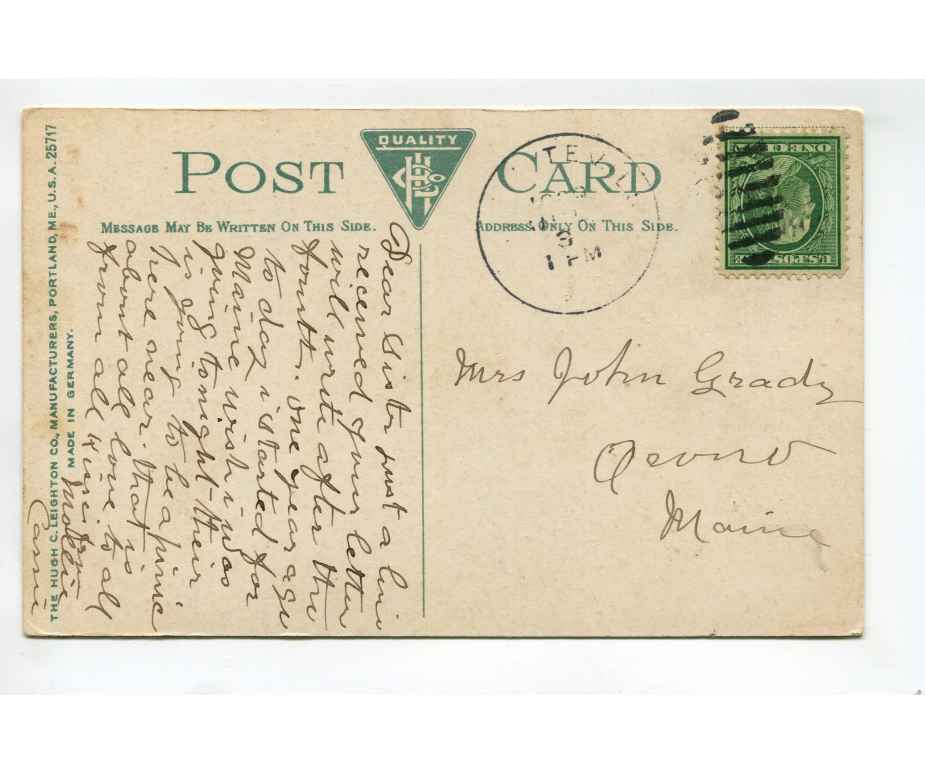 THE HUGH C. LEIGHTON CO., MANUFACTURERS, PORTLAND, ME., U.S.A. 25717
MADE IN GERMANY.
POST CARD
QUALITY
MESSAGE MAY BE WRITTEN ON THIS SIDE.
ADDRESS ONLY ON THIS SIDE.
1 PM
ONE
U.S. POSTAGE
Dear Sister Just a line
received your letter
will write after the
fourth. one year ago
to day i started for
Maine wish i was
going tonight their
is going to be a
here near. that is
about all love to all
from all
Mollie
Mrs John Grady
Maine